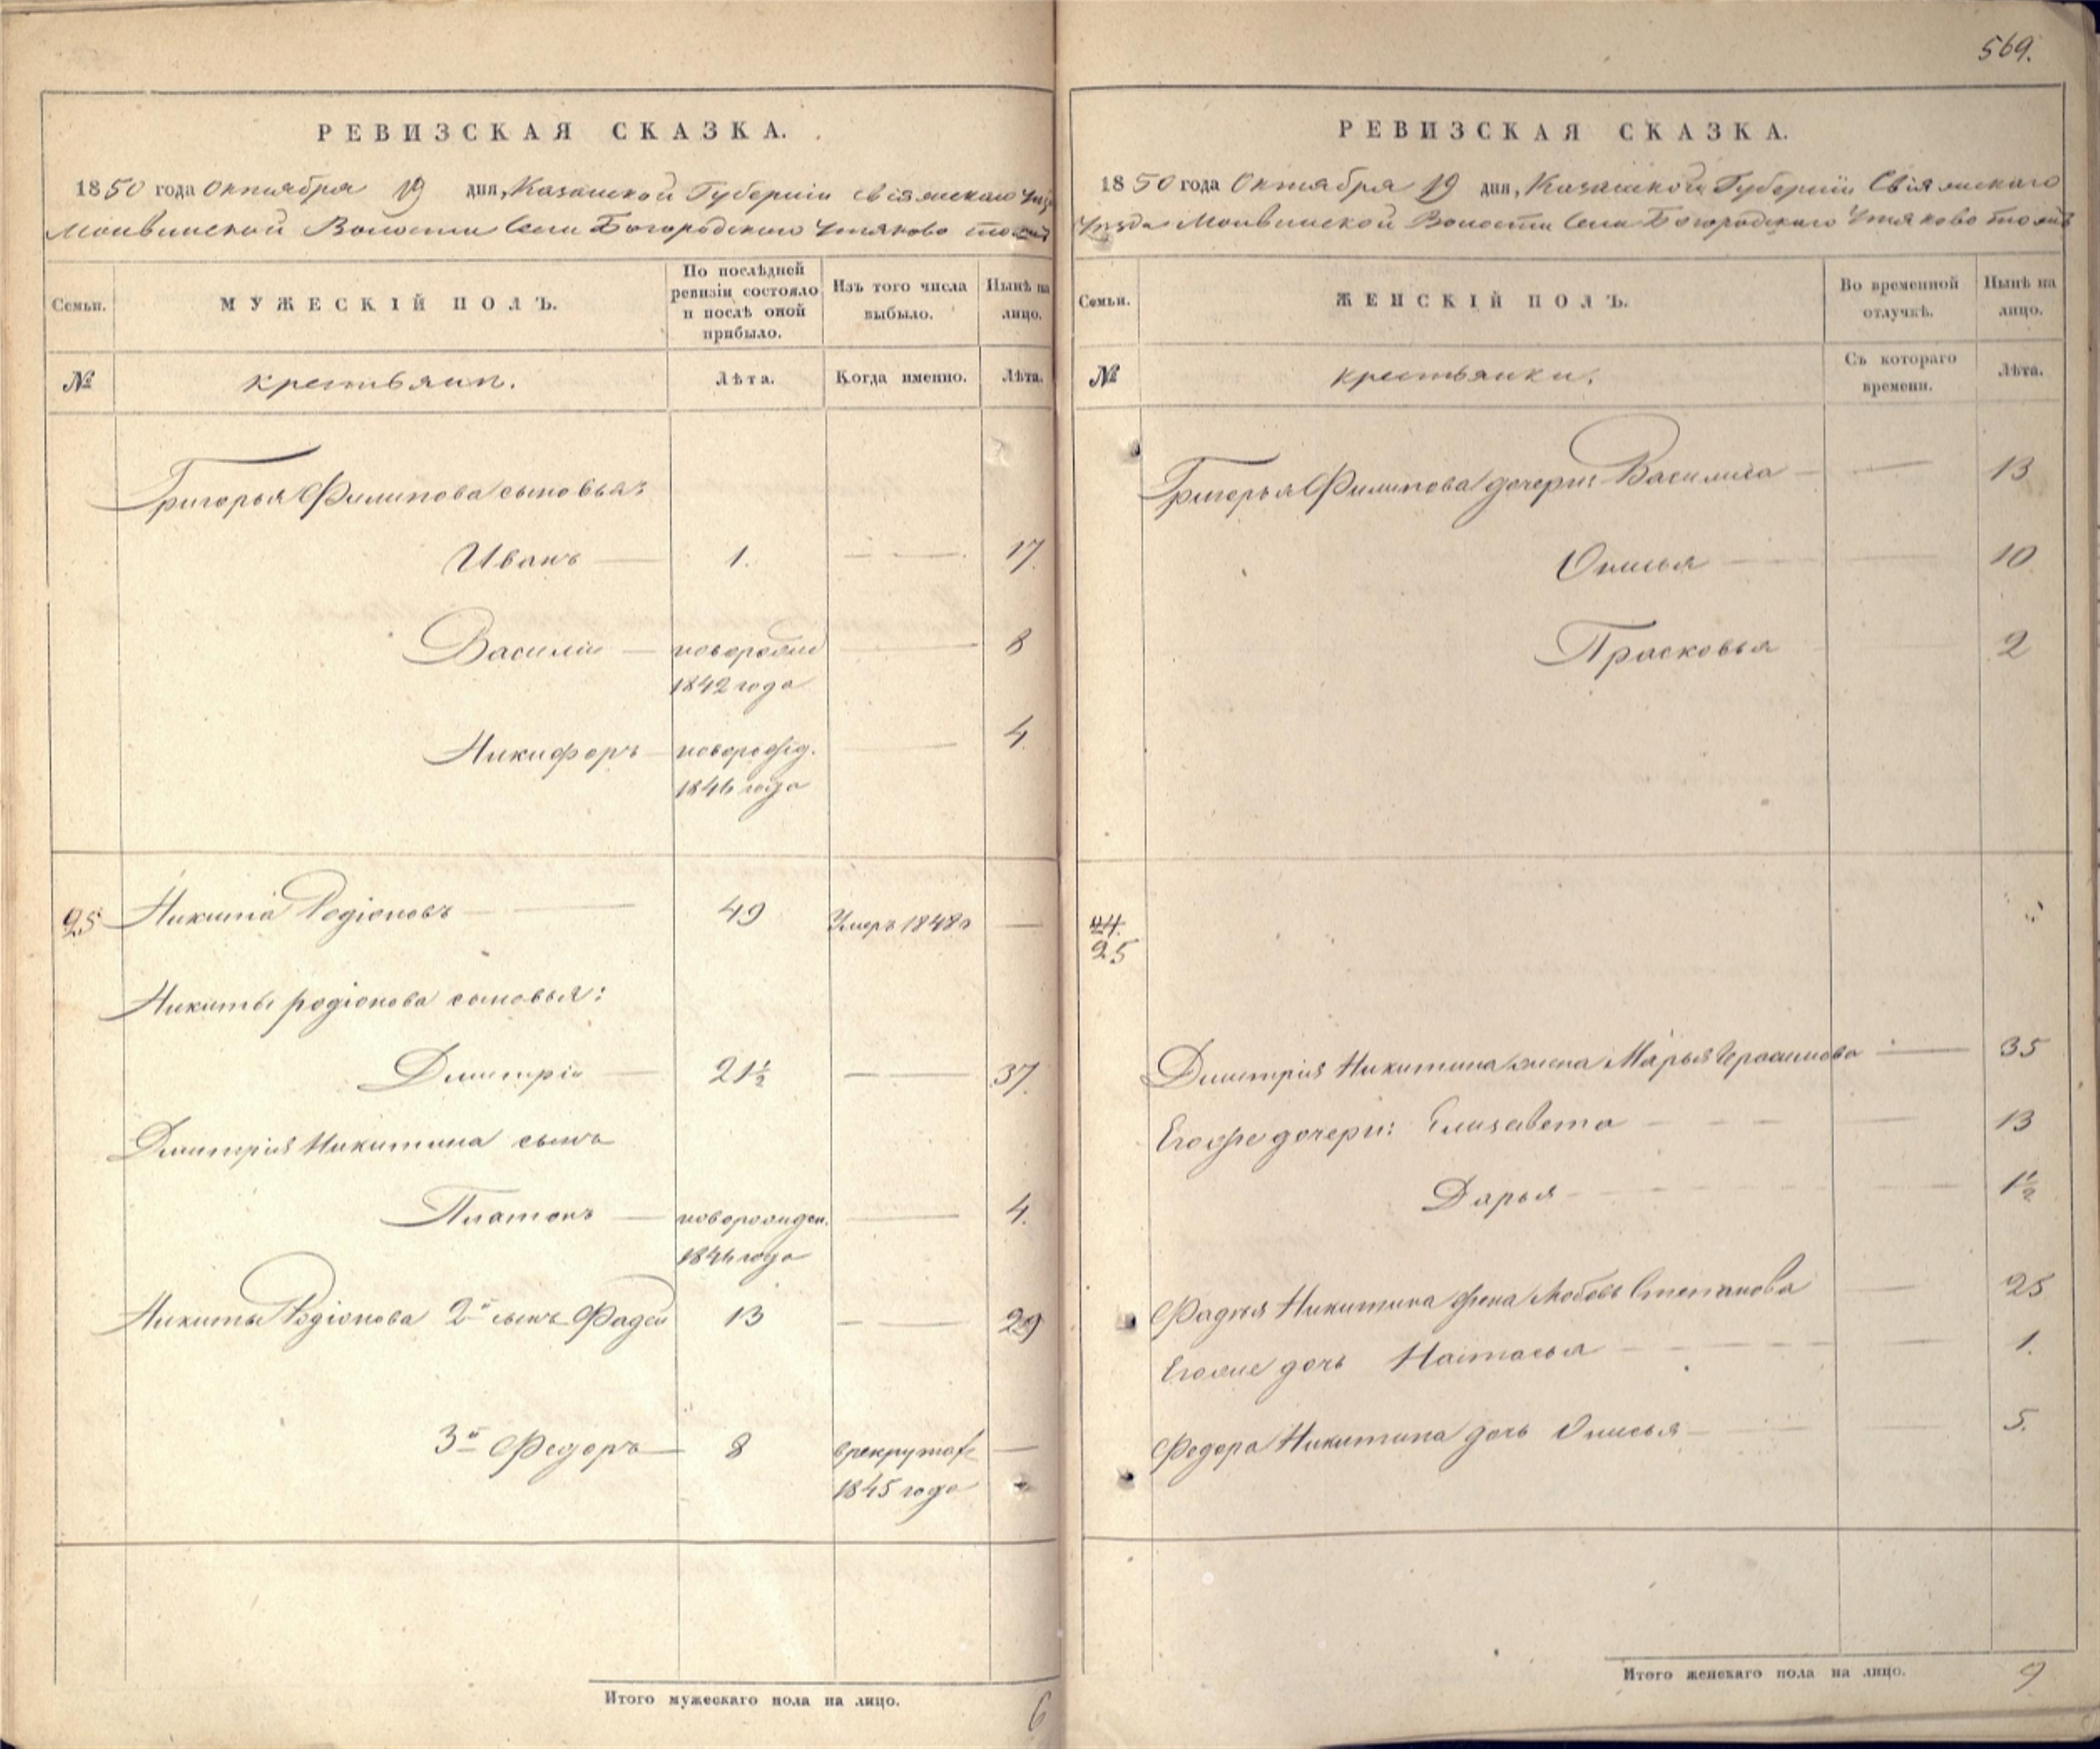 569.
РЕВИЗСКАЯ СКАЗКА.
1850 года Октября 19 дня, Казанской Губернiи Свiяжскаго
Волости Села Богородскаго Утяково тожъ
Семьи.
МУЖЕСКIЙ ПОЛЪ.
По послѣдней ревизiи состояло и послѣ оной прибыло.
Изъ того числа выбыло.
Нынѣ на лицо.
№
крестьяни.
Лѣта.
Когда именно.
Лѣта.
Григорья Филипова сыновья:
Иванъ — 1. — — 17.
Василiи — новорожд — 8
1842 года
Никифоръ — новорожд. — 4.
1846 года
25 Никита Родiоновъ — 49 Умеръ 1848г —
Никиты родiонова сыновья:
Димитрiи — 21½ — — 37.
Димитрiя Никитина сынъ
Платонъ — новорожден. — 4.
1846 года
Никиты Родiонова 2й сынъ Фадей 13 — — 29
3й Федоръ — 8 в рекрутах —
1845 года
Итого мужескаго пола на лицо. 6
РЕВИЗСКАЯ СКАЗКА.
1850 года Октября 19 дня, Казанской Губернiи Свiяжскаго
Уѣзда Волости Села Богородскаго Утяково тожъ
Семьи.
ЖЕНСКIЙ ПОЛЪ.
Во временной отлучкѣ.
Нынѣ на лицо.
№
крестьянки.
Съ котораго времени.
Лѣта.
Григорья Филипова дочери: Василиса — — 13
Онисья — — 10
Прасковья — 2
24.
25
Димитрiя Никитина жена Марья Герасимова — 35
Егоже дочери: Елизавета — — 13
Дарья — — 1½
Фадея Никитина жена Любовь Степанова — 25
Егоже дочь Настасья — — 1.
Федора Никитина дочь Онисья — — 5.
Итого женскаго пола на лицо. 9